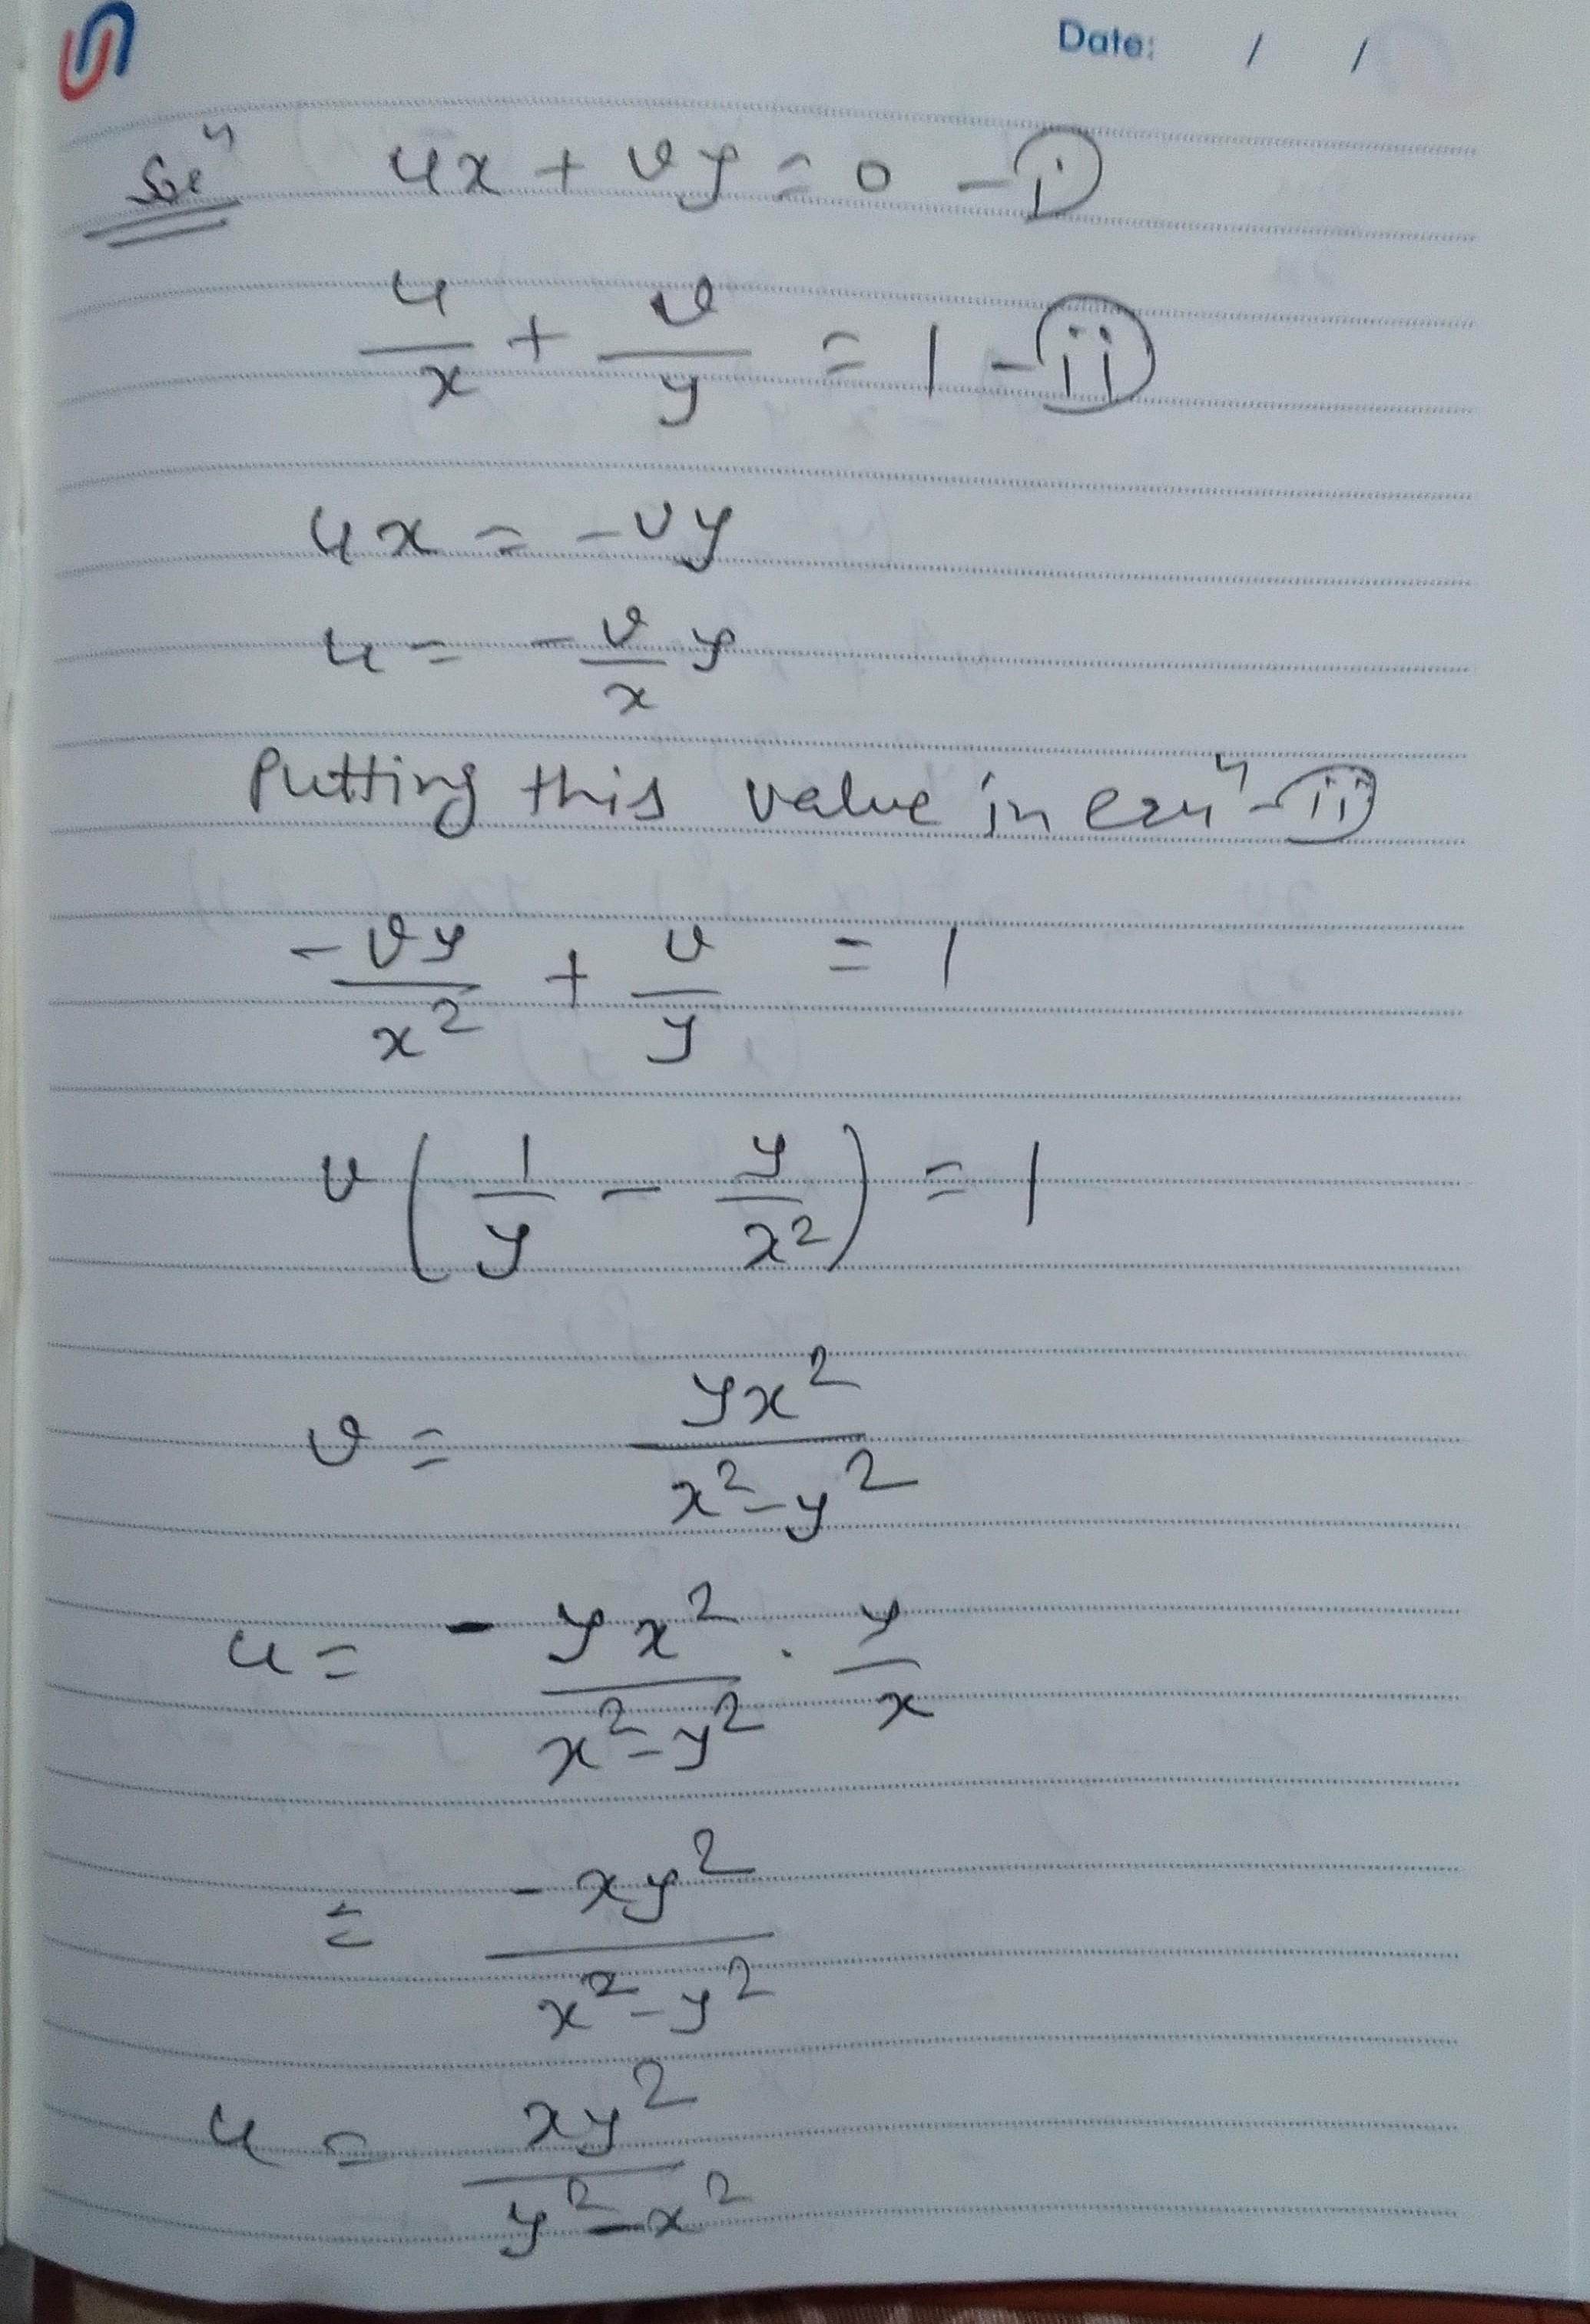 Date: / /
Solⁿ ux + vy = 0 - (i)
u/x + v/y = 1 - (ii)
ux = -vy
u = -v/x y
Putting this value in equⁿ - (ii)
-vy/x² + v/y = 1
v(1/y - y/x²) = 1
v = yx²/x²-y²
u = - yx²/x²-y² · y/x
= -xy²/x²-y²
u = xy²/y²-x²